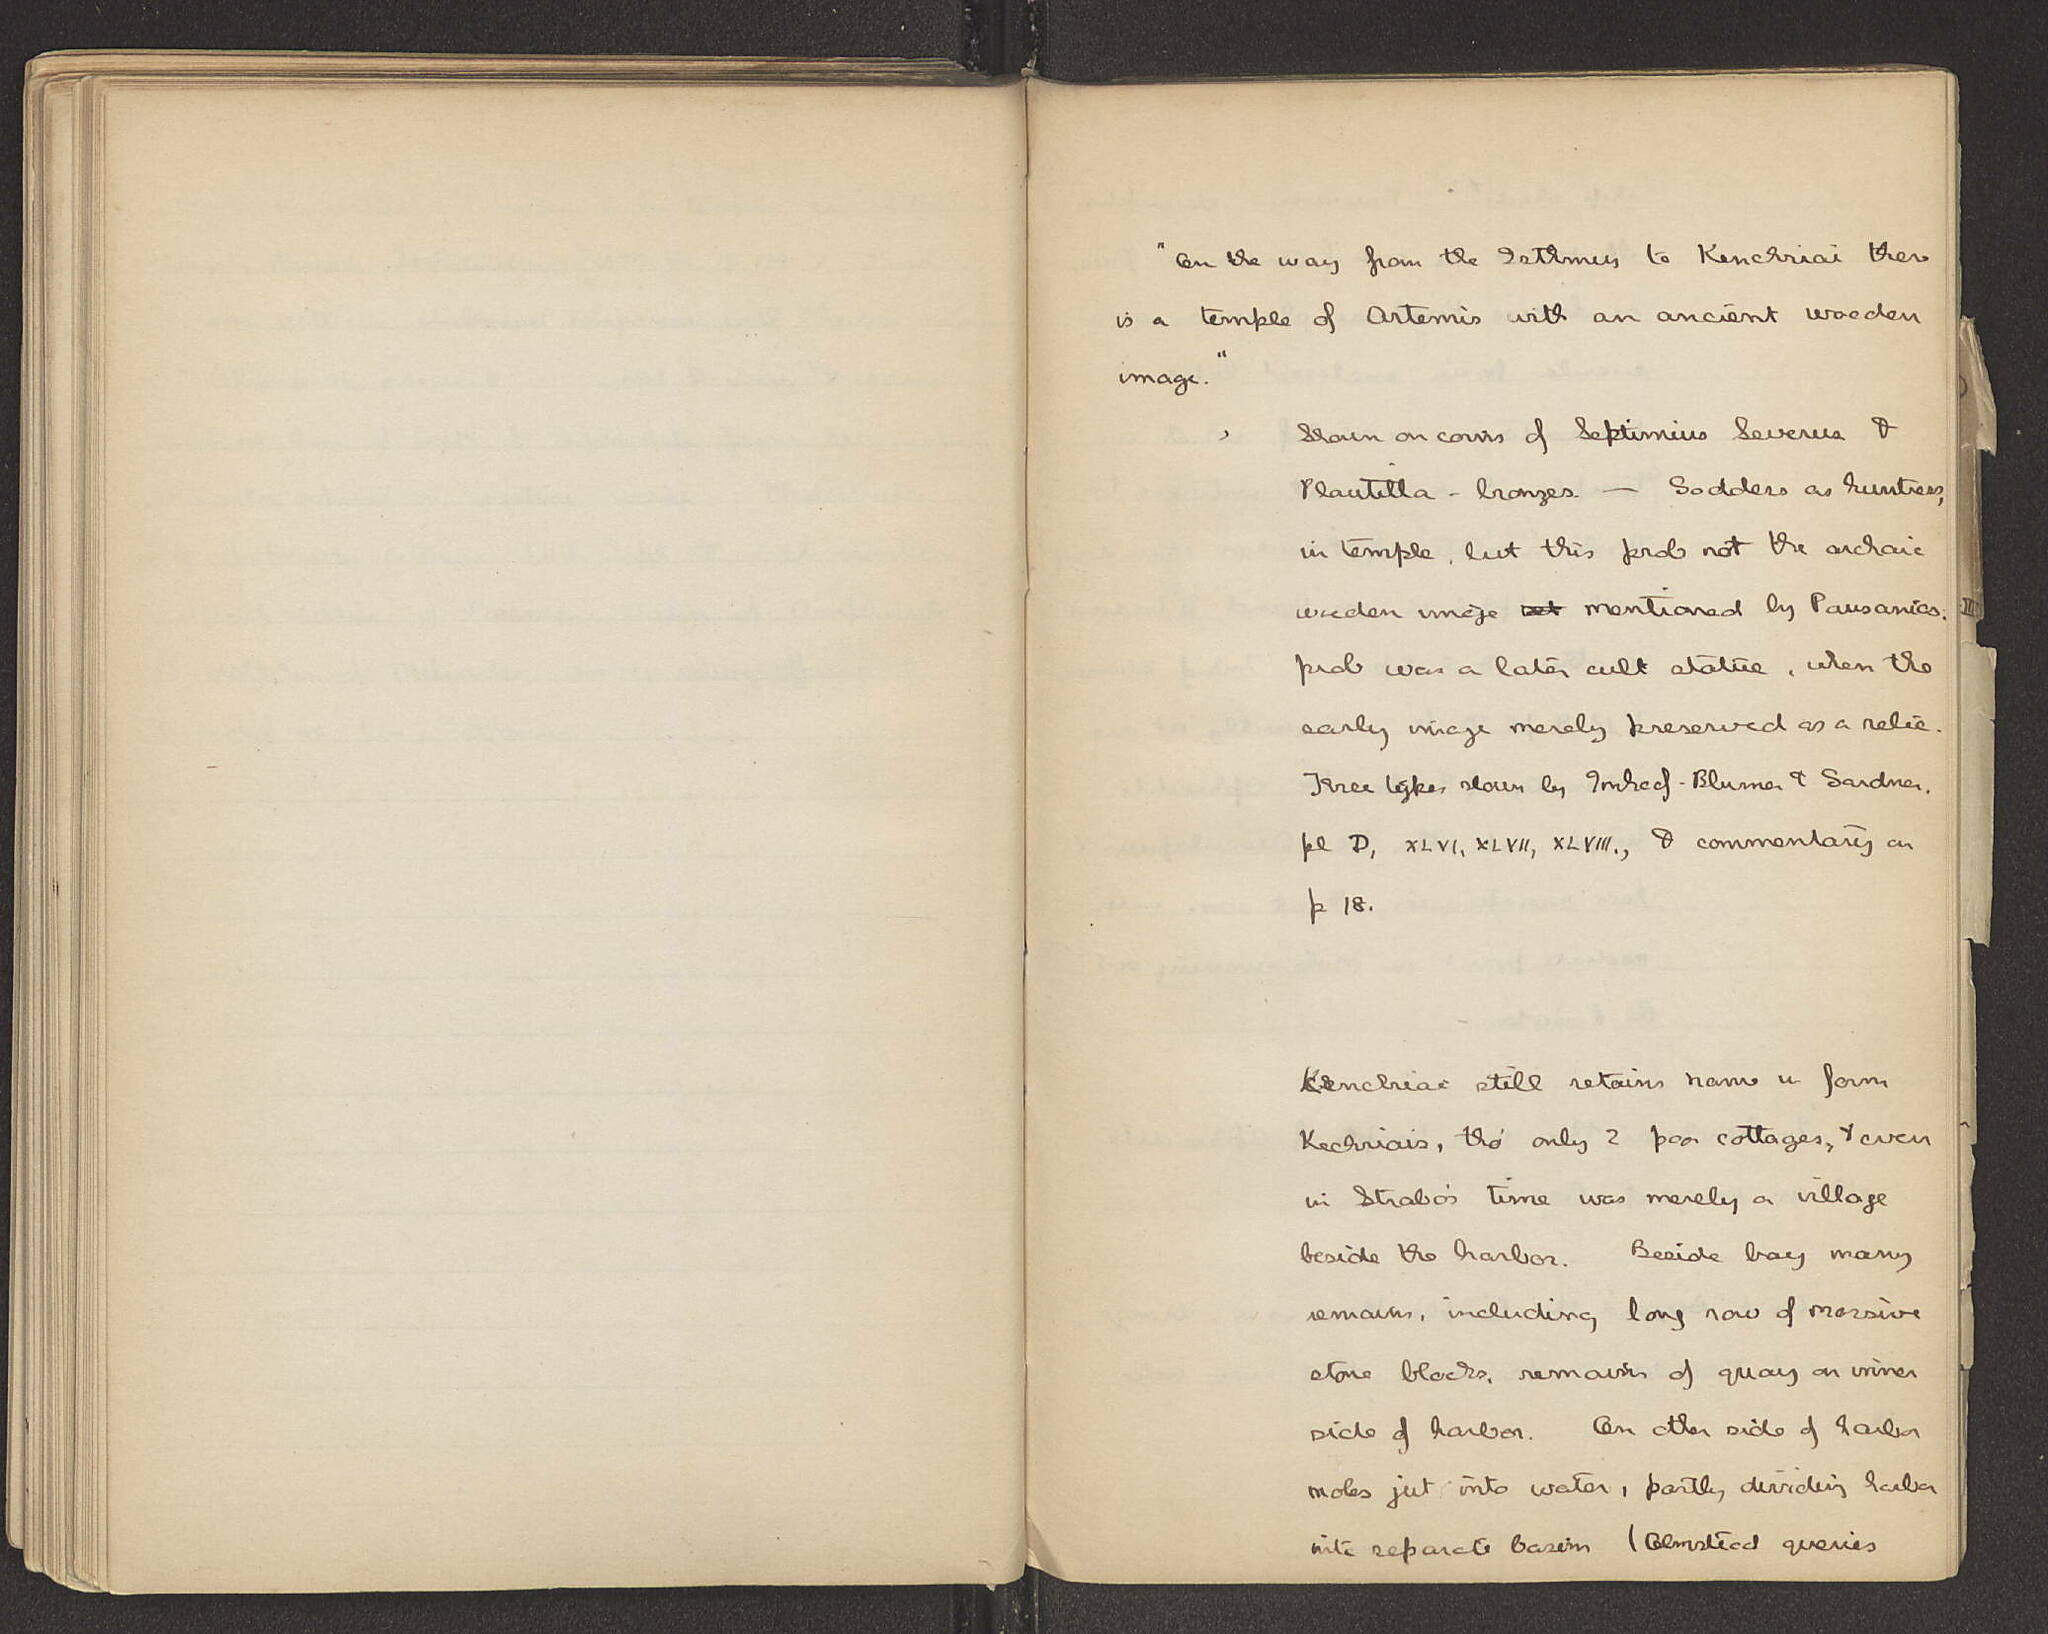 "On the way from the Isthmus to Kenchriai there
is a temple of Artemis with an ancient wooden
image."
Shown on coins of Septimius Severus &
Plautilla - bronzes — Goddess as huntress,
in temple, but this prob not the archaic
wooden image mentioned by Pausanias.
prob was a later cult statue, when the
early image merely preserved as a relic.
Three types shown by Imhoof-Blumer & Gardner.
pl D, XLVI, XLVII, XLVIII., & commentary on
p 18.
Kenchriai still retains name in form
Kechriais, tho' only 2 poor cottages, & even
in Strabo's time was merely a village
beside the harbor. Beside bay many
remains, including long row of massive
stone blocks, remains of quay on inner
side of harbor. On other side of harbor
moles jut into water, partly dividing harbor
into separate basins (Olmstead queries